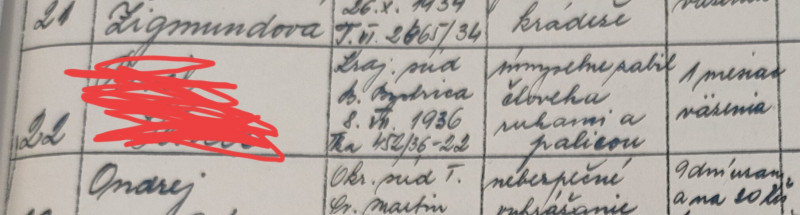 21 Zigmundova
26.X. 1934
T.VI. 2865/34
krádeže
väzenia
22
Kraj. súd
B. Bystrica
8. VII. 1936
Tka 452/36-22
úmyselne zabil
človeka
rukami a
palicou
1 mesiac
väzenia
Ondrej
Okr. súd T.
Sv. Martin
nebezpečné
vyhrážanie
9 dní
a na 20 Kčs